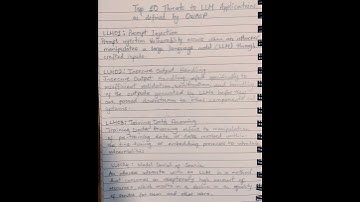 Top 10 Threats to LLM Applications
as defined by OWASP
LLM01: Prompt Injection
Prompt injection Vulnerability occurs when an attacker
manipulates a large language model (LLM) through
crafted inputs.
LLM02: Insecure Output Handling
Insecure Output Handling refers specifically to
insufficient validation, sanitization, and handling
of the outputs generated by LLMs before they
are passed downstream to other components
systems.
LLM03: Training Data Poisoning
Training Data Poisoning refers to manipulation
of pre-training data or data involved within
the fine tuning or embedding processes to introduce
vulnerabilities.
LLM04: Model Denial of Service
An attacker interacts with an LLM in a method
that consumes an exceptionally high amount of
resources, which results in a decline in the quality
of service for them and other users.